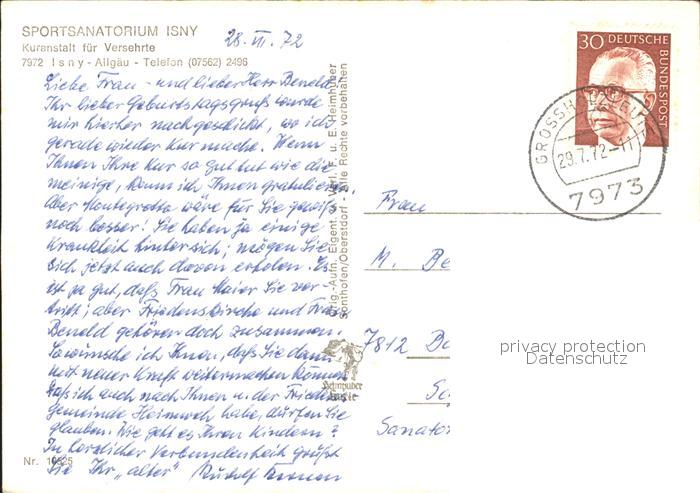 SPORTSANATORIUM ISNY
Kuranstalt für Versehrte
7972 Isny - Allgäu - Telefon (07562) 2496
28. VII. 72
Liebe Frau - und lieber Herr Benold
Ihr lieber Geburtstagsgruß wurde
mir hierher nachgeschickt, wo ich
gerade wieder Kur mache. Wenn
Ihnen Ihre Kur so gut tut wie die
meinige, kann ich Ihnen gratulieren.
Aber Montegrotto wäre für Sie gewiß
noch besser! Sie haben ja einige
Krankheit hinter sich; mögen Sie
sich jetzt auch davon erholen. Es
ist ja gut, daß Frau Maier Sie ver-
tritt; aber Friedenskirche und Frau
Benold gehören doch zusammen.
So wünsche ich Ihnen, daß Sie dann
mit neuer Kraft weitermachen können.
Daß ich auch nach Ihnen u. der Friedens
gemeinde Heimweh habe, dürfen Sie
glauben. Wie geht es Ihren Kindern?
In herzlicher Verbundenheit grüßt
Sie Ihr "alter" Rudolf
Nr. 10525
Orig.-Aufn. Eigent. u. Verl. F. u. E. Heimhuber
Sonthofen/Oberstdorf - Alle Rechte vorbehalten
Heimhuber
Karte
30 DEUTSCHE
BUNDESPOST
GROSSHOLZLEUTE
29.7.72-11
7973
Frau
M. Be
7812 Ba
Sc
Sanator
privacy protection
Datenschutz